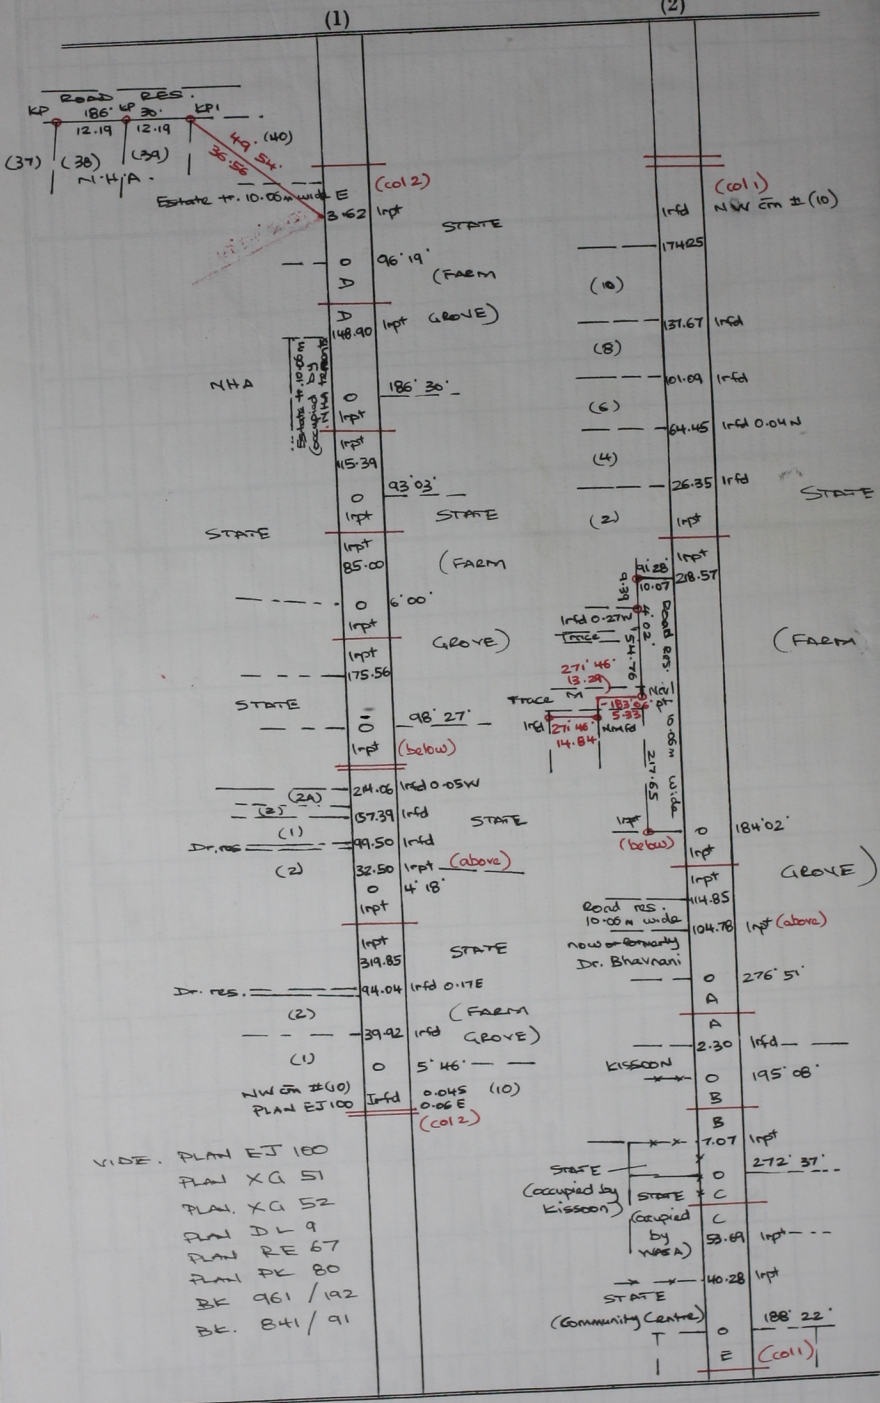 (1)
ROAD RES.
KP 186° KP 30' KP1
12.19 12.19
49° 54' (40)
36.56
(37) (38) (39)
N.H.A.
(col 2)
Estate tr. 10.06m wide E
3.62 Inpt
STATE
0 96° 19'
A (FARM
A
148.90 Inpt GROVE)
Estate tr. 10.06m
(occupied by
NHA tenants
NHA
0 186° 30'
Inpt
Inpt
115.39
0 93° 03'
Inpt STATE
STATE
Inpt
85.00 (FARM
0 6° 00'
Inpt
GROVE)
Inpt
175.56
STATE
0 98° 27'
Inpt (below)
214.06 Irfd 0.05W
(2A)
(2) 157.39 Irfd
STATE
(1)
Dr. res 99.50 Irfd
(2) 32.50 Inpt (above)
0 4° 18'
Inpt
Inpt
319.85 STATE
Dr. res. 94.04 Irfd 0.17E
(2) (FARM
39.92 Irfd GROVE)
(1) 0 5° 46'
NW cm #(10) Irfd 0.04S (10)
PLAN EJ100 0.06E
(col 2)
VIDE. PLAN EJ 100
PLAN XG 51
PLAN. XG 52
PLAN DL 9
PLAN RE 67
PLAN PK 80
BK 961/192
BK. 841/91
(2)
(col 1)
Irfd NW cm #(10)
174.25
(10)
137.67 Irfd
(8)
101.09 Irfd
(6)
64.45 Irfd 0.04N
(4)
26.35 Irfd
STATE
(2) Inpt
Inpt
91° 28'
10.07 218.57
9.39
Irfd 0.27N
4° 02'
Trace
154.76
Road Res. 10.06m wide
(FARM
271° 46'
13.29
Trace
183° 06'
5.33
Irfd 271° 46' Nmfd
14.84
217.65
Inpt 0 184° 02'
(below)
Inpt
Inpt GROVE)
114.85
Road res.
10.06m wide
104.78 Inpt (above)
now or formerly
Dr. Bhavnani
0 276° 51'
A
A
2.30 Irfd
KISSOON
0 195° 08'
B
B
7.07 Inpt
STATE
(occupied by
Kissoon)
0 272° 37'
C
STATE
(occupied
by
WASA)
C
53.69 Inpt
40.28 Inpt
STATE
(Community Centre)
0 188° 22'
E (col 1)